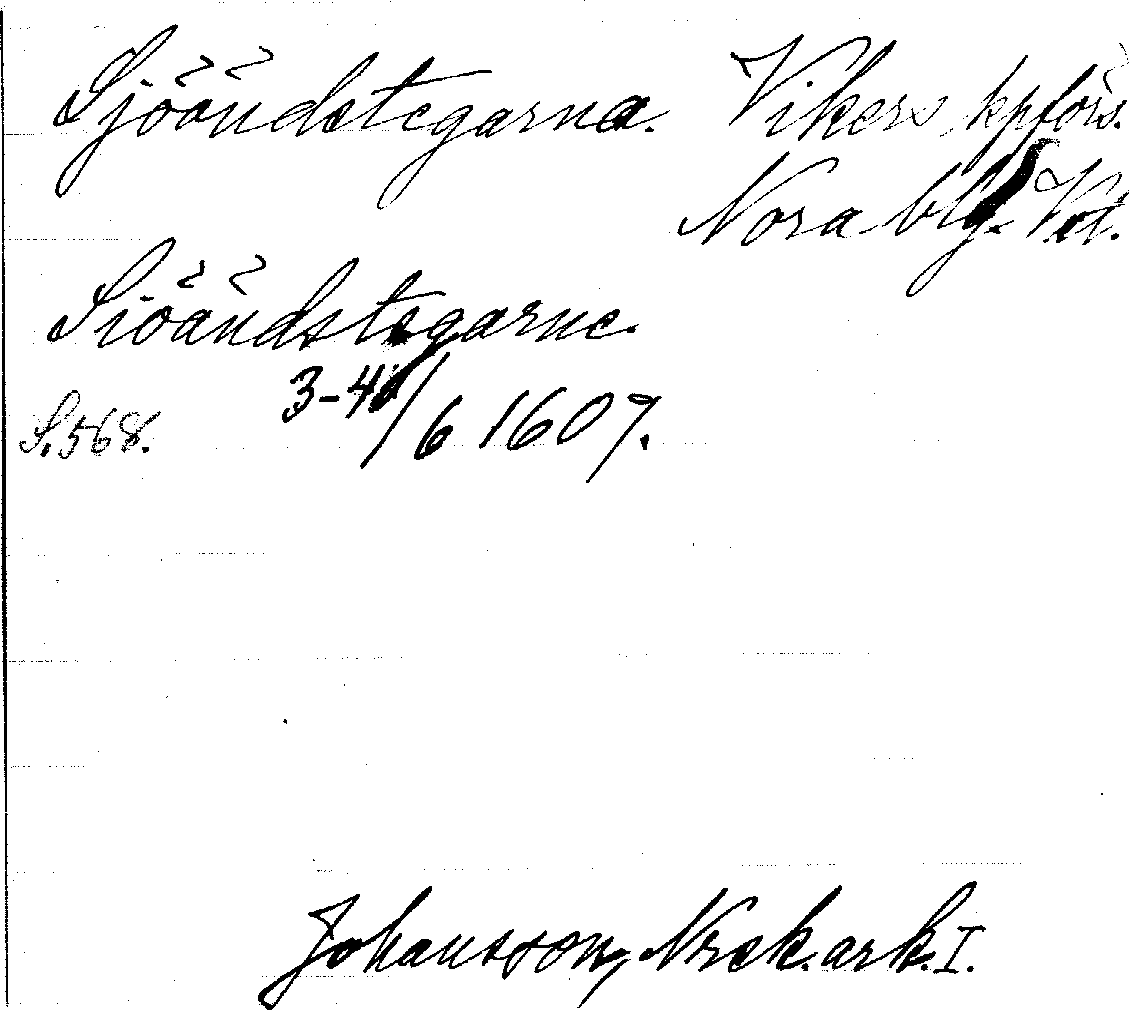 Sjöändstegarna. Vikers kpförs.
Nora blg. Vstl.
Siöändstegarne.
3-4/6 1607.
S. 568.
Johansson, Noraskog. ark. I.